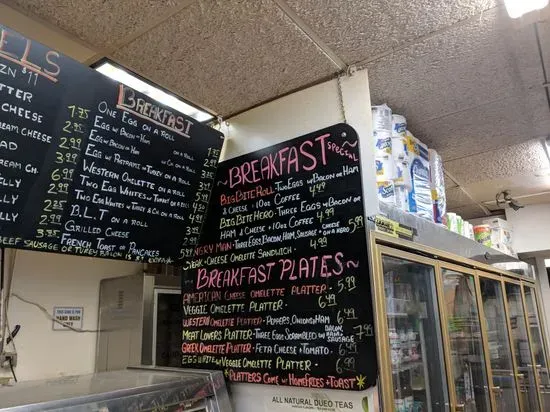 ELS
ZN $11
BUTTER
CHEESE
CREAM CHEESE
BREAKFAST
ONE EGG ON A ROLL
EGG W/ BACON OR HAM
EGG W/ BACON OR HAM
EGG W/ PASTRAMI OR TURKEY ON A ROLL
WESTERN OMELETTE ON A ROLL
TWO EGG WHITES W/ TURKEY ON A ROLL
TWO EGG WHITES W/ TURKEY & CH. ON A ROLL
B.L.T ON A ROLL
GRILLED CHEESE
FRENCH TOAST OR PANCAKES
BEEF SAUSAGE OR TURKEY BACON IS
~BREAKFAST~ SPECIAL
BIG BITE ROLL - TWO EGGS W/ BACON OR HAM
& CHEESE + 10oz COFFEE 4.49
BIG BITE HERO - THREE EGGS W/ BACON OR
HAM & CHEESE + 10oz COFFEE 4.99
HUNGRY MAN - THREE EGGS, BACON, HAM, SAUSAGE + CHEESE ON A HERO 5.99
STEAK + CHEESE OMELETTE SANDWICH - 4.99
BREAKFAST PLATES~
AMERICAN CHEESE OMELETTE PLATTER - 5.99
VEGGIE OMELETTE PLATTER - 6.49
WESTERN OMELETTE PLATTER - PEPPERS, ONIONS & HAM 6.49
MEAT LOVERS PLATTER - THREE EGGS SCRAMBLED W/ BACON, HAM, SAUSAGE 7.99
GREEK OMELETTE PLATTER - FETA CHEESE + TOMATO 6.99
EGG WHITE W/ VEGGIE OMELETTE PLATTER - 6.99
*PLATTERS COME W/ HOMEFRIES + TOAST*
HAND WASH
ALL NATURAL DUEO TEAS
Scott